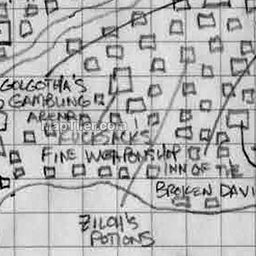 GOLGOTHA'S
GAMBLING
ARENA
FINE WEAPONSHOP
INN OF THE
BROKEN DAVI
ZILCH'S
POTIONS